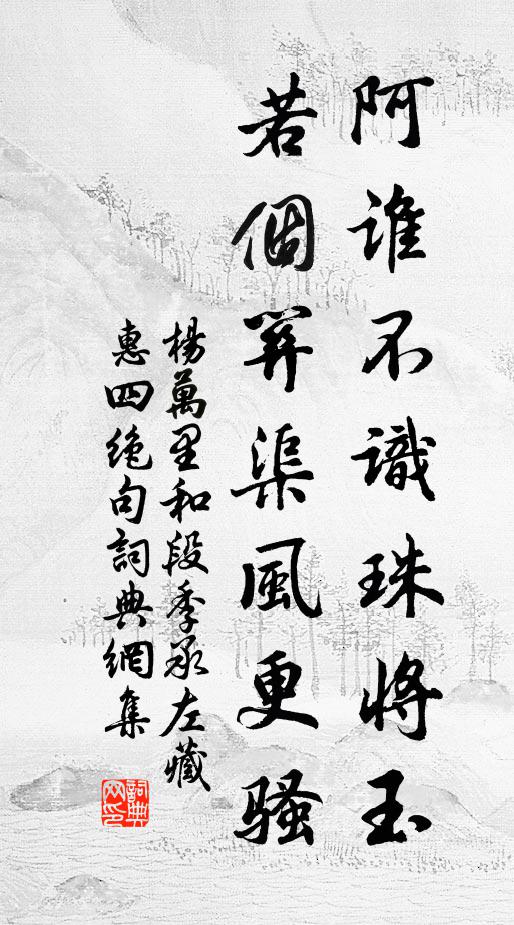 阿誰不識珠將玉
若個關渠風更騷
楊萬里和段季承左藏
惠四絕句詞典網集
詞典
网印